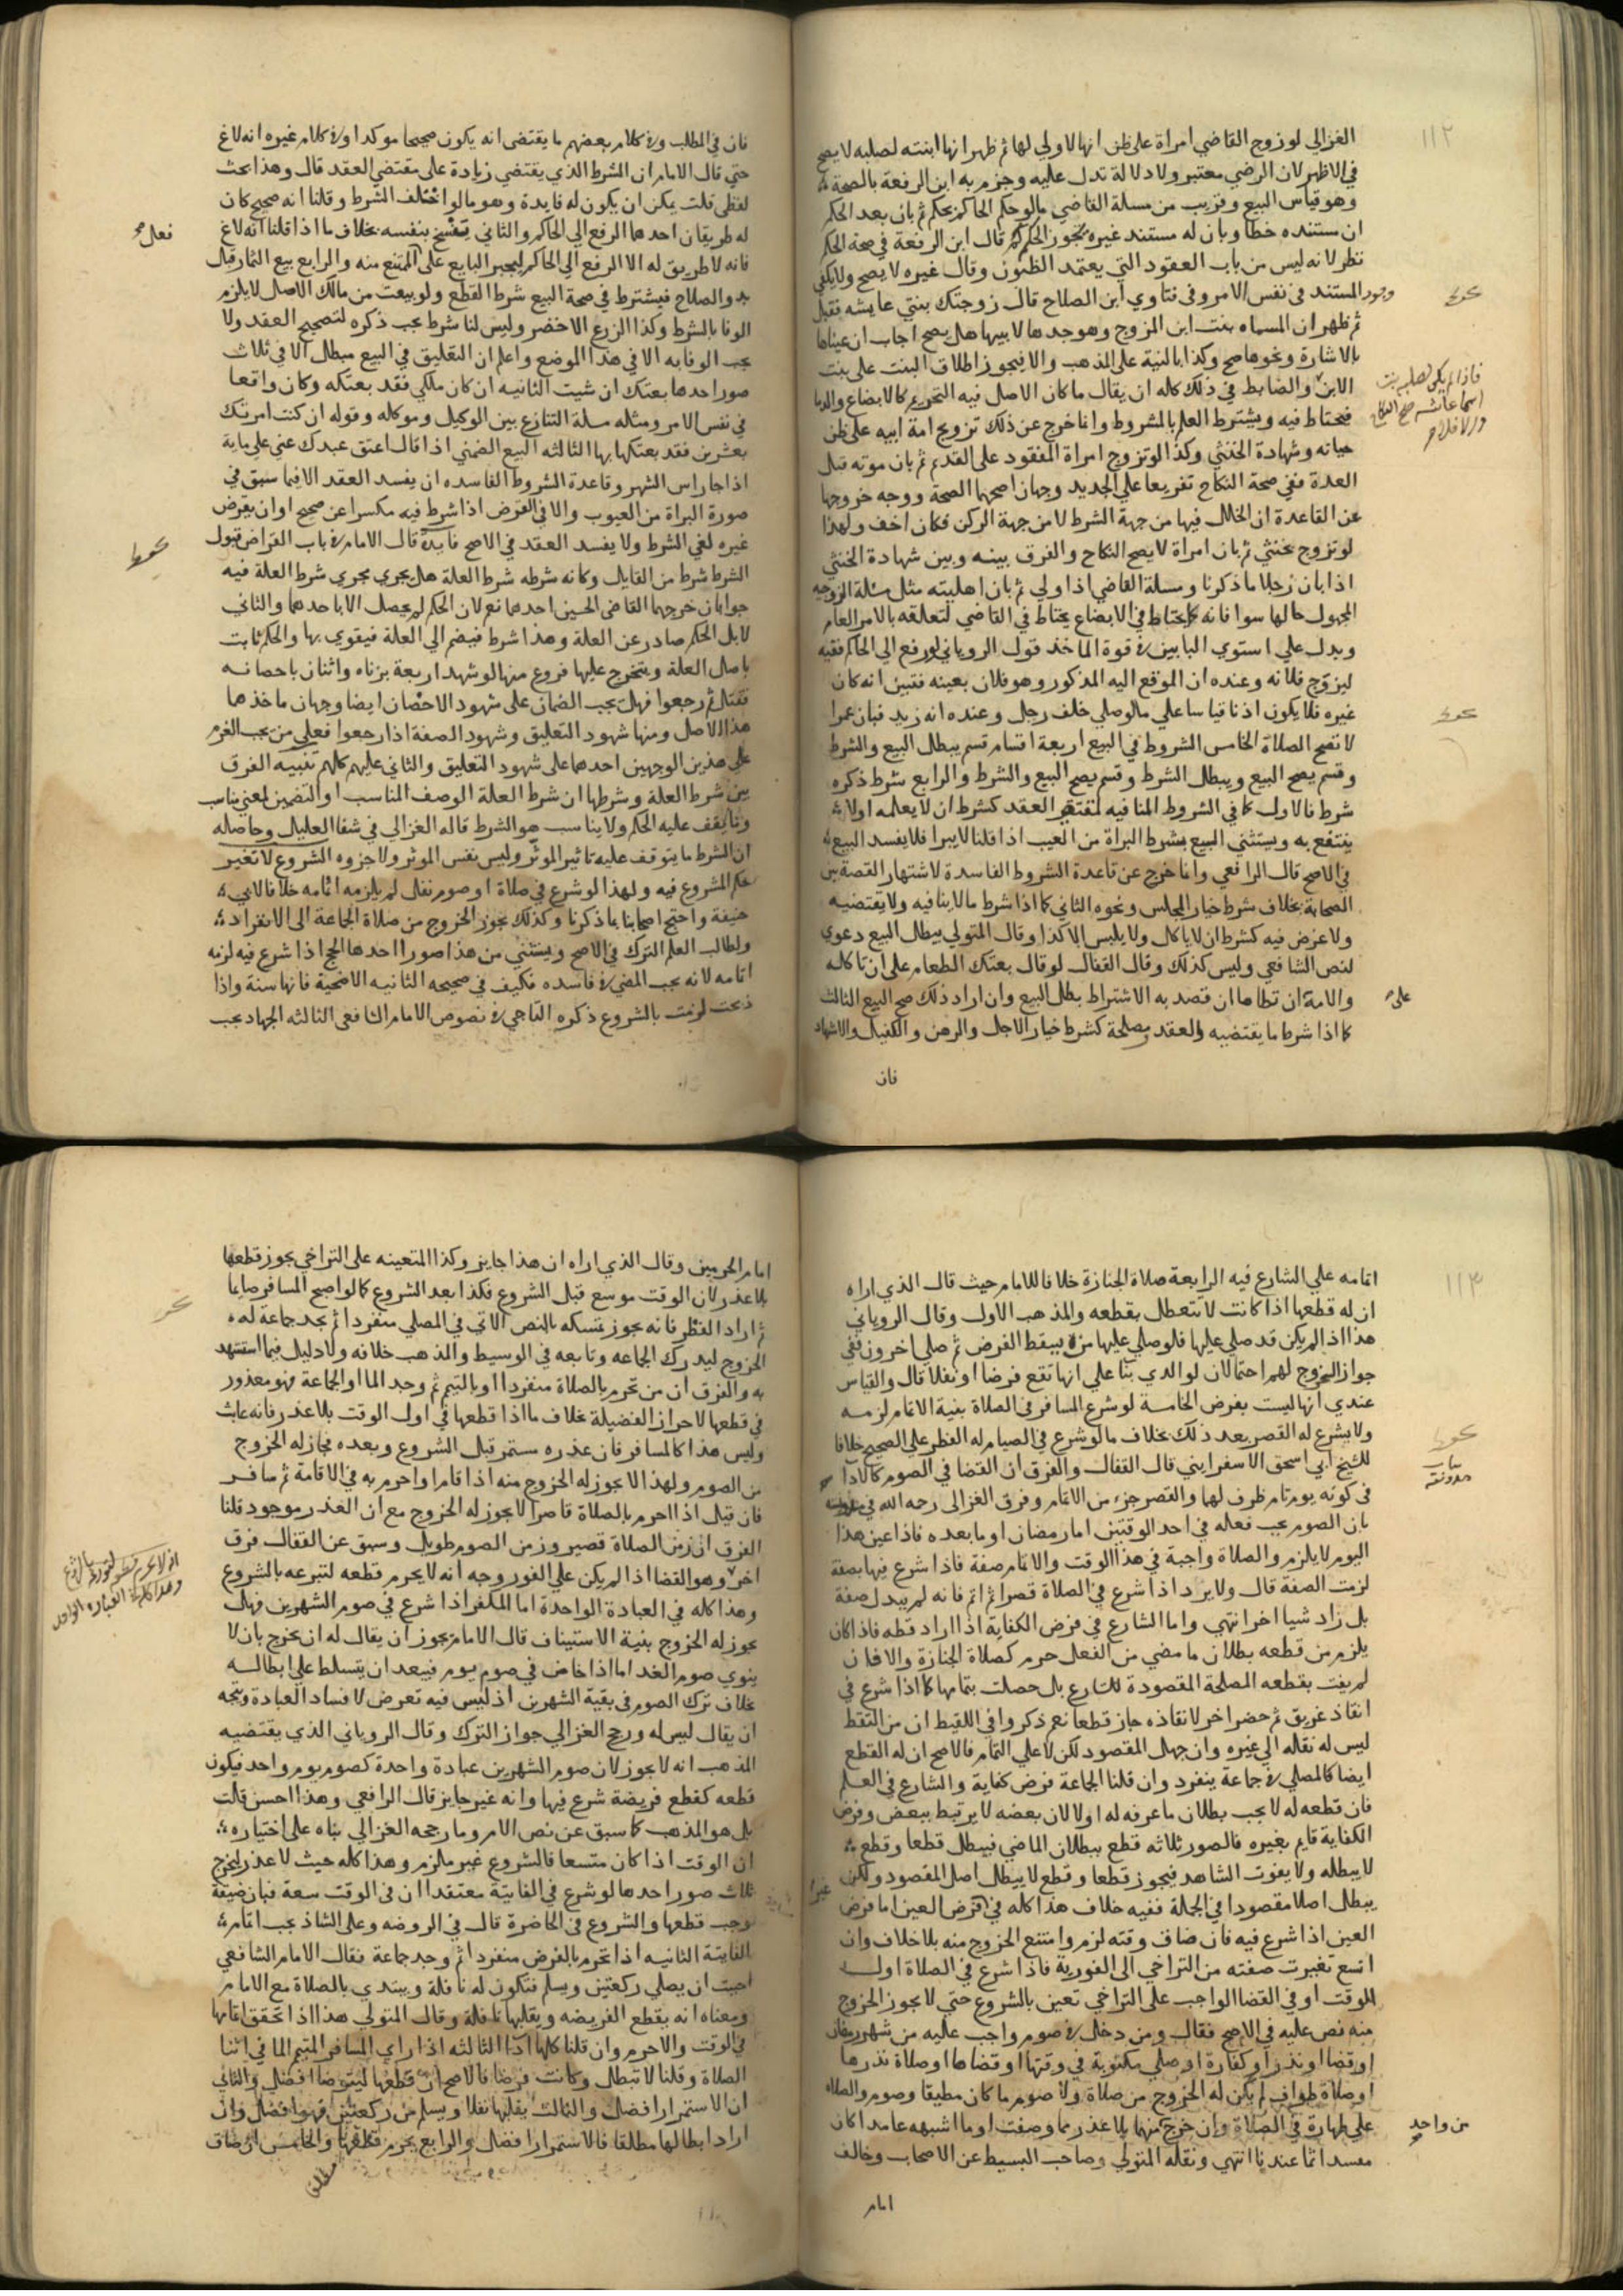 ١١٢
الغزالي لو زوج القاضي امراة على ظن انها لا ولي لها ثم ظهر انها ابنته لصلبه لا يصح
في الاظهر لان الرضي معتبر ولا دلالة تدل عليه وجزم به ابن الرفعة بالصحة
وهو قياس البيع وقريب من مسلة القاضي ما لو حكم الحاكم بحكم ثم بان بعد الحكم
ان مستنده خطا وبان له مستند غيره يجوز الحكم به قال ابن الرفعة في صحة الحكم
نظر لانه ليس من باب العقود التي يعتمد الظنون وقال غيره لا يصح ولا يكفي
وجود المستند في نفس الامر وفي فتاوي ابن الصلاح قال زوجتك بنتي عايشه فقبل
ثم ظهر ان المسماه بنت ابن المزوج وهو جدها لابيها هل يصح اجاب ان عيناها
بالاشارة ونحوها صح وكذا بالنية على المذهب والا فيجوز اطلاق البنت على بنت
الابن والضابط في ذلك كله ان يقال ما كان الاصل فيه التحريم كالابضاع والدما
فيحتاط فيه ويشترط العلم بالمشروط وانما خرج عن ذلك تزويج امة ابيه على ظن
حياته وشهادة الخنثي وكذا لو تزوج امراة المفقود على القديم ثم بان موته قبل
العدة ففي صحة النكاح تفريعا على الجديد وجهان اصحهما الصحة ووجه خروجها
عن القاعدة ان الخلل فيها من جهة الشرط لا من جهة الركن فكان اخف ولهذا
لو تزوج بخنثي ثم بان امراة لا يصح النكاح والفرق بينه وبين شهادة الخنثي
اذا بان رجلا ما ذكرنا ومسلة القاضي اذا ولي ثم بان اهليته مثل مسئلة الزوجيه
المجهول حالها سوا فانه كما يحتاط في الابضاع يحتاط في القاضي لتعلقه بالامر العام
ويدل علي استوي البابين في قوة الماخذ قول الروياني لو رفع الي الحاكم فقيه
ليزوج فلانه وعنده ان الموقع اليه المذكور وهو فلان بعينه فتبين انه كان
غيره فلا يكون اذنا قياسا علي ما لو صلي خلف رجل وعنده انه زيد فبان عمرا
لا تصح الصلاة الخامس الشروط في البيع اربعة اقسام قسم يبطل البيع والشرط
وقسم يصح البيع ويبطل الشرط وقسم يصح البيع والشرط والرابع شرط ذكره
شرط فالاول كما في الشروط المنافيه لمقتضي العقد كشرط ان لا يعلمه اولا
ينتفع به ويستثني البيع بشرط البراة من العيب اذا قلنا لا يبرا فلا يفسد البيع
في الاصح قال الرافعي وانما خرج عن قاعدة الشروط الفاسدة لاشتهار القصة بين
الصحابة بخلاف شرط خيار المجلس ونحوه الثاني كما اذا شرط ما لا ينافيه ولا يقتضيه
ولا غرض فيه كشرط ان لا ياكل ولا يلبس الا كذا وقال المتولي يبطل البيع دعوي
لنص الشافعي وليس كذلك وقال القفال لو قال بعتك الطعام على ان تاكله
والامة ان تطاها ان قصد به الاشتراط بطل البيع وان اراد ذلك صح البيع الثالث
كما اذا شرط ما يقتضيه والعقد ومصلحة كشرط خيار الاجل والرهن والكفيل والاشهاد
فان
فان في المطلب وفي كلام بعضهم ما يقتضي انه يكون صحيحا موكدا وفي كلام غيره انه لاغ
حتي قال الامام ان الشرط الذي يقتضي زيادة على مقتضي العقد قال وهذا بحث
لفظي قلت يمكن ان يكون له فايدة وهو ما لو اختلف الشرط وقلنا انه صحيح كان
له طريقان احدهما الرفع الي الحاكم والثاني يفسخ بنفسه بخلاف ما اذا قلنا انه لاغ
فانه لا طريق له الا الرفع الي الحاكم ليجبر البايع على الممتنع منه والرابع بيع الثمار قبل
بدو الصلاح فيشترط في صحة البيع شرط القطع ولو بيعت من مالك الاصل لا يلزم
الوفا بالشرط وكذا الزرع الاخضر وليس لنا شرط يجب ذكره لتصحيح العقد ولا
يجب الوفا به الا في هذا الموضع واعلم ان التعليق في البيع مبطل الا في ثلاث
صور احدها بعتك ان شيت الثانيه ان كان ملكي فقد بعتكه وكان واقعا
في نفس الامر ومثله مسلة التنازع بين الوكيل وموكله وقوله ان كنت امرتك
بعشرين فقد بعتكها بها الثالثه البيع الضمني اذا قال اعتق عبدك عني علي ماية
اذا جا راس الشهر وقاعدة الشروط الفاسده ان يفسد العقد الا فيما سبق في
صورة البراة من العيوب والا في القرض اذا شرط فيه مكسرا عن صحيح او ان يقرض
غيره لغي الشرط ولا يفسد العقد في الاصح فايدة قال الامام في باب القراض قبول
الشرط شرط من القايل وكانه شرطه شرط العلة هل يجري مجري شرط العلة فيه
جوابان خرجهما القاضي الحسين احدهما نعم لان الحكم لم يحصل الا باحدهما والثاني
لا بل الحكم صادر عن العلة وهذا شرط فيضم الي العلة فيقوي بها والحكم ثابت
باصل العلة ويتخرج عليها فروع منها لو شهد اربعة بزناه واثنان باحصانه
فقتل ثم رجعوا فهل يجب الضمان على شهود الاحصان ايضا وجهان ماخذهما
هذا الاصل ومنها شهود التعليق وشهود الصفة اذا رجعوا فعلي من يجب الغرم
علي هذين الوجهين احدهما على شهود التعليق والثاني عليهم كلهم تنبيه الفرق
بين شرط العلة وشرطها ان شرط العلة الوصف المناسب او التضمين لمعني يناسب
وما يقف عليه الحكم ولا يناسب هو الشرط قاله الغزالي في شفا العليل وحاصله
ان الشرط ما يتوقف عليه تاثير الموثر وليس نفس الموثر ولا جزوه الشروع لا تغير
حكم المشروع فيه ولهذا لو شرع في صلاة او صوم نفل لم يلزمه اتمامه خلافا لابي
حنيفة واحتج اصحابنا بما ذكرنا وكذلك يجوز الخروج من صلاة الجماعة الى الانفراد
ولطالب العلم الترك في الاصح ويستثني من هذا صورا احدها الحج اذا شرع فيه لزمه
اتمامه لانه يجب المضي في فاسده فكيف في صحيحه الثانيه الاضحية فانها سنة واذا
ذبحت لزمت بالشروع ذكره التاجي في نصوص الامام الشافعي الثالثه الجهاد يجب
١١٣
اتمامه علي الشارع فيه الرابعة صلاة الجنازة خلافا للامام حيث قال الذي اراه
ان له قطعها اذا كانت لا تتعطل بقطعه والمذهب الاول وقال الروياني
هذا اذا لم يكن قد صلي عليها فلو صلي عليها من يسقط الفرض ثم صلي اخرون ففي
جواز الخروج لهم احتمالان لوالدي بنا علي انها تقع فرضا او نفلا قال والقياس
عندي انها ليست بفرض الخامسة لو شرع المسافر في الصلاة بنية الاتمام لزمه
ولا يشرع له القصر بعد ذلك بخلاف ما لو شرع في الصيام له الفطر علي الصحيح خلافا
للشيخ ابي اسحق الاسفرايني قال القفال والفرق ان القضا في الصوم كالادا
في كونه يوم تام ظرف لهما والقصر جزء من الاتمام وفرق الغزالي رحمه الله في
بان الصوم يجب فعله في احد الوقتين اما رمضان او ما بعده فاذا عين هذا
اليوم لا يلزم والصلاة واجبة في هذا الوقت والاتمام صفة فاذا شرع فيها بصفة
لزمت الصفة قال ولا يرد اذا شرع في الصلاة قصرا ثم اتم فانه لم يبدل صفة
بل زاد شيا اخر انتهي واما الشارع في فرض الكفاية اذا اراد قطعه فاذا كان
يلزم من قطعه بطلان ما مضي من الفعل حرم كصلاة الجنازة والا فان
لم يفت بقطعه المصلحة المقصودة للشارع بل حصلت بتمامها كما اذا شرع في
انقاذ غريق ثم حضر اخر لانقاذه جاز قطعا نعم ذكروا في اللقيط ان من التقط
ليس له نقله الي غيره وان جهل المقصود لكن لا علي التمام فالاصح ان له القطع
ايضا كالمصلي في جماعة ينفرد وان قلنا الجماعة فرض كفاية والشارع في العلم
فان قطعه له لا يجب بطلان ما عرفه له اولا لان بعضه لا يرتبط ببعض وفرض
الكفاية قايم بغيره فالصور ثلاثه قطع يبطلان الماضي فيبطل قطعا وقطع
لا يبطله ولا يفوت الشاهد فيجوز قطعا وقطع لا يبطل اصل المقصود ولكن
يبطل اصلا مقصودا في الجملة ففيه خلاف هذا كله في فرض العين اما فرض
العين اذا شرع فيه فان ضاق وقته لزم وامتنع الخروج منه بلا خلاف وان
اتسع تغيرت صفته من التراخي الى الفورية فاذا شرع في الصلاة اول
الوقت او في القضا الواجب على التراخي تعين بالشروع حتي لا يجوز الخروج
منه نص عليه في الاصح فقال ومن دخل في صوم واجب عليه من شهر رمضان
او قضا او نذر او كفارة او صلي مكتوبة في وقتها او قضاها او صلاة نذرها
او صلاة طواف لم يكن له الخروج من صلاة ولا صوم ما كان مطيقا وصوم والصلاه
علي طهارة في الصلاة وان خرج منهما بلا عذر مما وصفت او ما اشبهه عامدا كان
مفسدا اثما عندنا انتهي ونقله المتولي وصاحب البسيط عن الاصحاب وخالف
امام
امام الحرمين وقال الذي اراه ان هذا جايز وكذا المتعينه على التراخي يجوز قطعها
بلا عذر لان الوقت موسع قبل الشروع فكذا بعد الشروع كما لو اصبح المسافر صايما
ثم اراد الفطر فانه يجوز تمسكه بالنص الاتي في المصلي منفردا ثم يجد جماعة له
الخروج ليدرك الجماعه وتابعه في الوسيط والمذهب خلافه ولا دليل فيما استشهد
به والفرق ان من تحرم بالصلاة منفردا او بالتيمم ثم وجد الما او الجماعة فهو معذور
في قطعها لاحراز الفضيلة بخلاف ما اذا قطعها في اول الوقت بلا عذر فانه عابث
وليس هذا كالمسافر فان عذره مستمر قبل الشروع وبعده فجاز له الخروج
من الصوم ولهذا لا يجوز له الخروج منه اذا قام او احرم به في الاقامة ثم سافر
فان قيل اذا احرم بالصلاة قاصرا لا يجوز له الخروج مع ان العذر موجود قلنا
الفرق ان زمن الصلاة قصير وزمن الصوم طويل وسبق عن القفال فرق
اخر وهو القضا اذا لم يكن علي الفور وجه انه لا يحرم قطعه لتبرعه بالشروع
وهذا كله في العبادة الواحدة اما المكفر اذا شرع في صوم الشهرين فهل
يجوز له الخروج بنية الاستيناف قال الامام يجوز ان يقال له ان يخرج بان لا
ينوي صوم الغد اما اذا خاض في صوم يوم فيبعد ان يتسلط علي ابطاله
بخلاف ترك الصوم في بقية الشهرين اذ ليس فيه تعرض لافساد العبادة ويتجه
ان يقال ليس له ورجح الغزالي جواز الترك وقال الروياني الذي يقتضيه
المذهب انه لا يجوز لان صوم الشهرين عبادة واحدة كصوم يوم واحد فيكون
قطعه كقطع فريضة شرع فيها وانه غير جايز قال الرافعي وهذا احسن قلت
بل هو المذهب كما سبق عن نص الام وما رجحه الغزالي بناه على اختياره
ان الوقت اذا كان متسعا فالشروع غير ملزم وهذا كله حيث لا عذر ليخرج
ثلاث صور احدها لو شرع في الفايتة معتقدا ان في الوقت سعة فبان ضيقه
وجب قطعها والشروع في الحاضرة قال في الروضه وعلى الشاذ يجب اتمام
الفايتة الثانيه اذا تحرم بالفرض منفردا ثم وجد جماعة فقال الامام الشافعي
احببت ان يصلي ركعتين ويسلم فتكون له نافلة ويبتدي بالصلاة مع الامام
ومعناه انه يقطع الفريضه ويقلبها نافلة وقال المتولي هذا اذا تحقق اتمامها
في الوقت والا حرم وان قلنا كلها ادا الثالثه اذا راي المسافر المتيمم الما في اثنا
الصلاة وقلنا لا تبطل وكانت فرضا فالاصح ان قطعها ليتوضا افضل والثاني
ان الاستمرار افضل والثالث يقلبها نفلا ويسلم من ركعتين فهو افضل وان
اراد ابطالها مطلقا فالاستمرار افضل والرابع يحرم قطعها والخامس ان ضاق